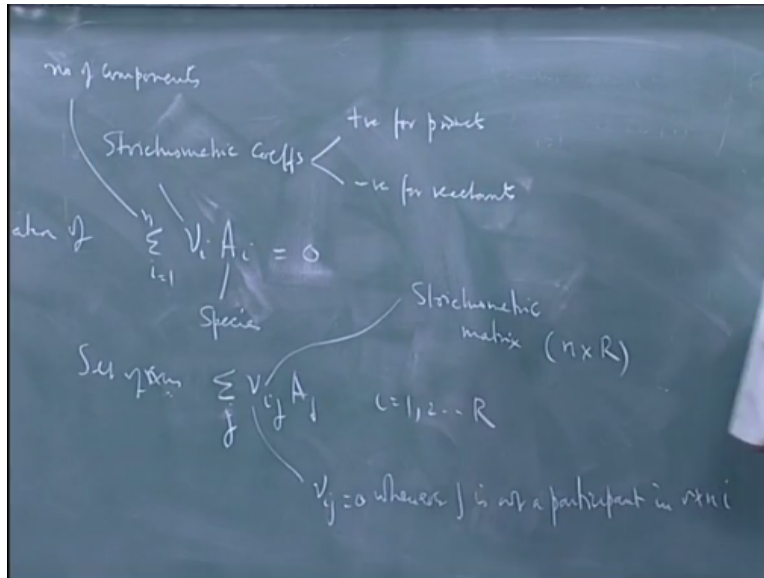 no of components
Stoichiometric Coeffs
+ve for products
-ve for reactants
n
∑ ν_i A_i = 0
i=1
Species
Stoichiometric
matrix (n x R)
Set of rxns ∑ ν_ij A_j i=1,2... R
j
ν_ij = 0 whenever j is not a participant in rxn i